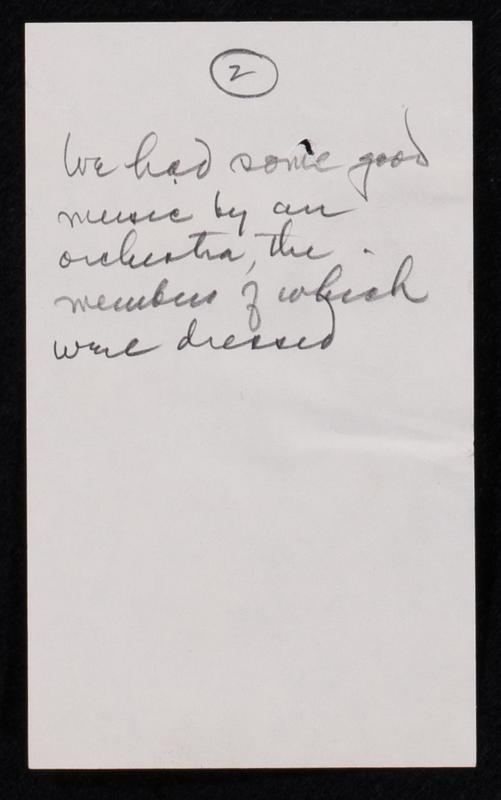 2
We had some good
music by an
orchestra, the
members of which
were dressed